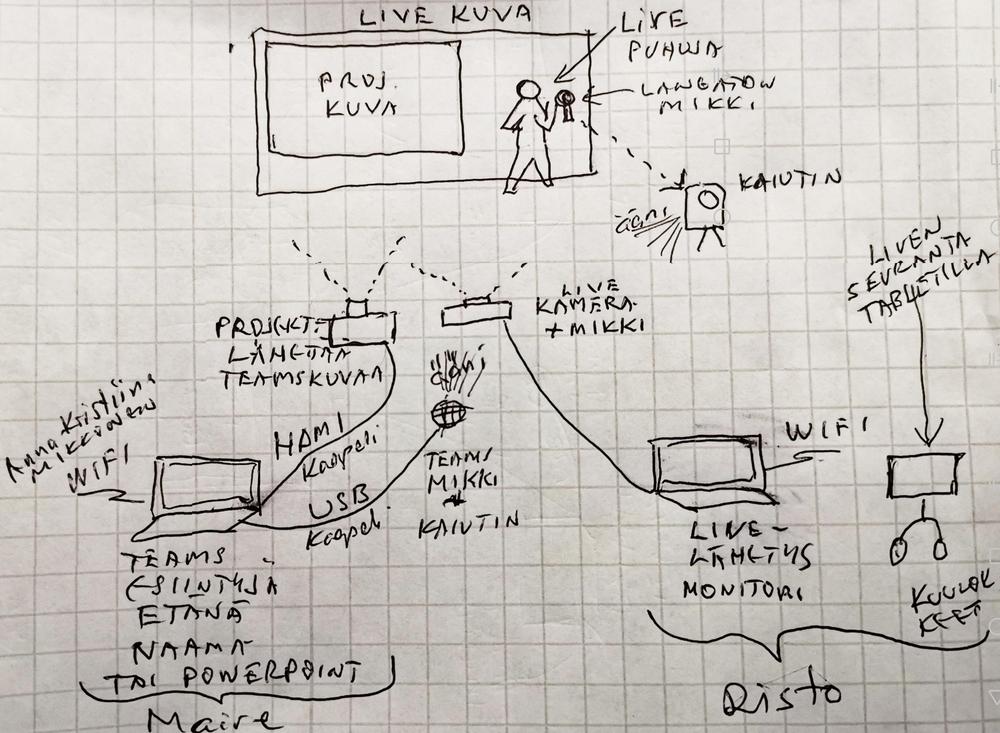 LIVE KUVA
LIVE
PUHUJA
PROJ.
KUVA
LANGATON
MIKKI
KAIUTIN
ääni
LIVEN
SEURANTA
TABLETILLA
LIVE
KAMERA
+ MIKKI
PROJEKT.
LÄHETTÄÄ
TEAMSKUVAA
ääni
Anna Kristiina
MIKKONEN
WIFI
HDMI
Kaapeli
USB
Kaapeli
TEAMS
MIKKI
+
KAIUTIN
WIFI
LIVE-
LÄHETYS
MONITORI
KUULOK
KEET
TEAMS
ESIINTYJÄ
ETÄNÄ
NAAMA
TAI POWERPOINT
Maire
Risto